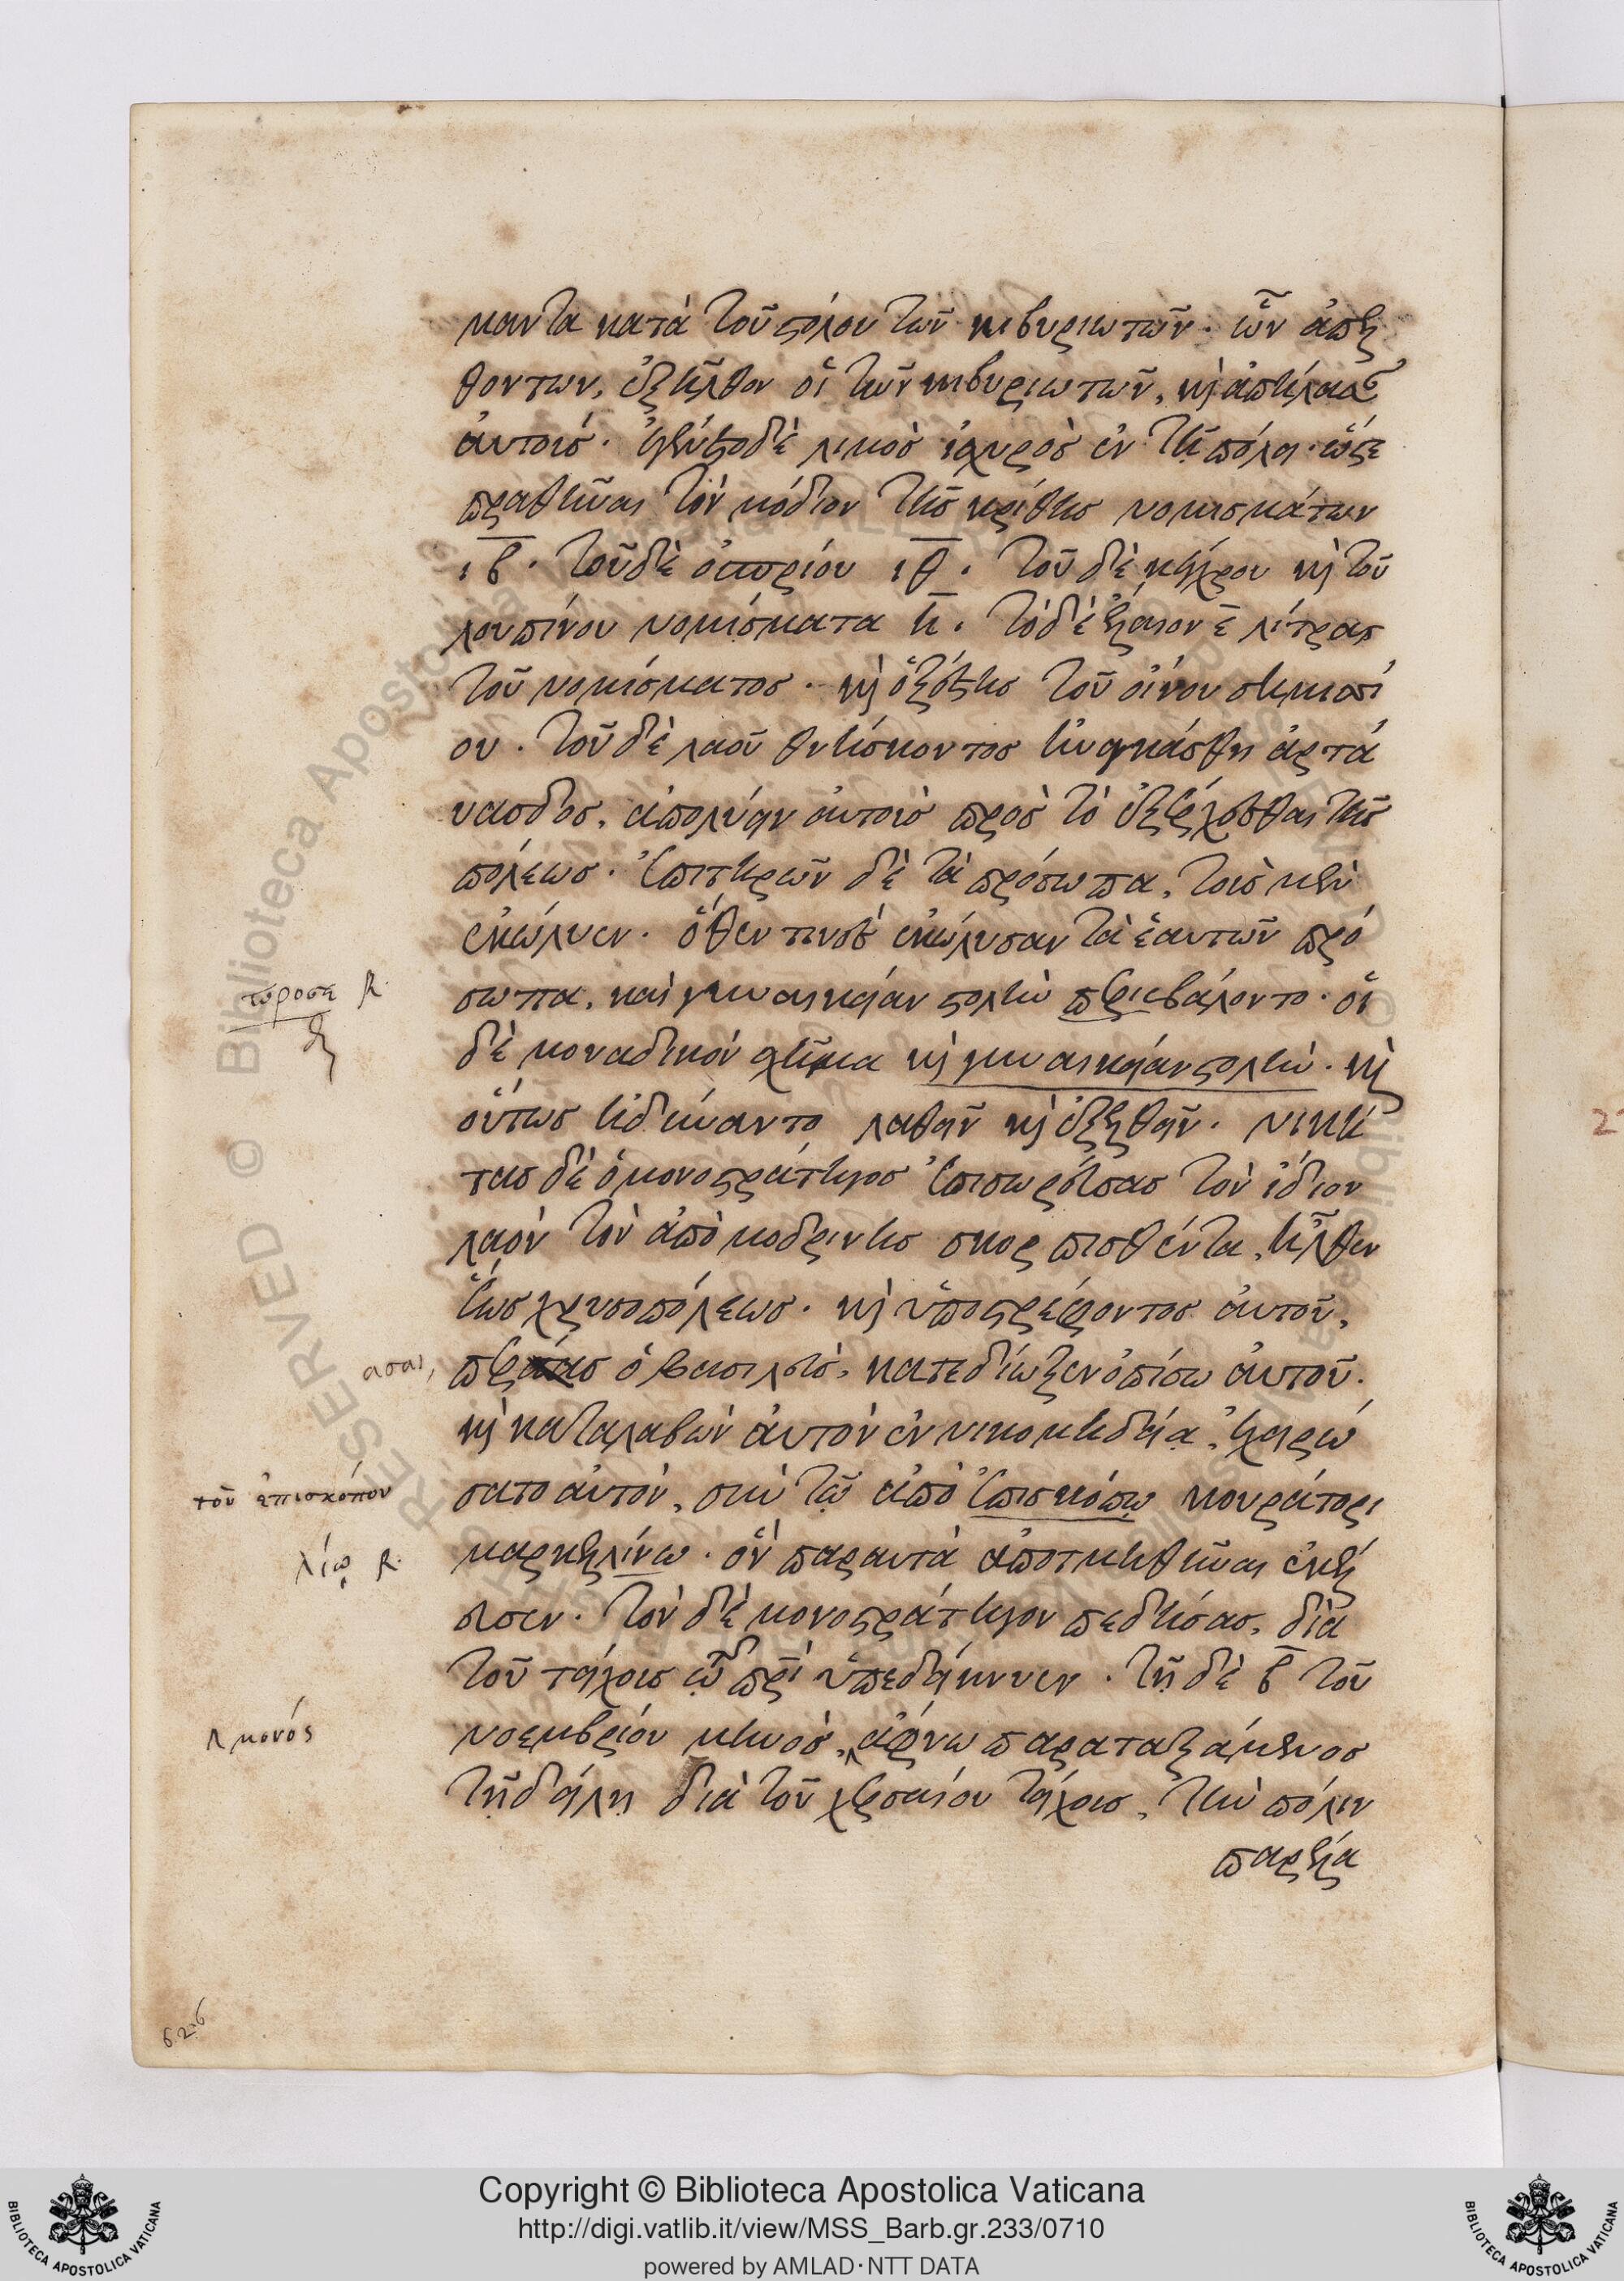 μαντα κατὰ τοῦ στόλου τῶν κιβυριωτῶν. ὧν ἀπελ
θόντων, ἐξῆλθον οἱ τῶν κιβυριωτῶν, καὶ ἀπήλασαν
αὐτούς. ἐγένετο δὲ λιμὸς ἰσχυρὸς ἐν τῇ πόλει. ὥστε
πραθῆναι τὸν μόδιον τῆς κριθῆς νομισμάτων
ιβ. τοῦ δὲ ὀσπρίου ιθ. τοῦ δὲ κέγχρου καὶ τοῦ
λουπίνου νομίσματα η. τὸ δὲ ἔλαιον ε λίτρας
τοῦ νομίσματος. καὶ ὁ ξέστης τοῦ οἴνου σημισί
ου. τοῦ δὲ λαοῦ θνήσκοντος ἠναγκάσθη ἀρτά
υασδος, ἀπολύειν αὐτοὺς πρὸς τὸ ἐξέρχεσθαι τῆς
πόλεως. ἐπιτηρῶν δὲ τὰ πρόσωπα, τοὺς μὲν
ἐκώλυεν. ὅθεν τινὲς ἐκώλυσαν τὰ ἑαυτῶν πρό
σωπα, καὶ γυναικείαν στολὴν περιεβάλοντο. οἱ
δὲ μοναδικὸν σχῆμα καὶ γυναικείαν στολὴν. καὶ
οὕτως ἠδύναντο λαθεῖν καὶ ἐξελθεῖν. νική
τας δὲ ὁ μονοστράτηγος ἐπισωρεύσας τὸν ἴδιον
λαὸν τὸν ἀπὸ μοδρινῆς σκορπισθέντα, ἦλθεν
ἕως χρυσοπόλεως. καὶ ὑποστρέφοντος αὐτοῦ,
ασας,
περάσας ὁ βασιλεὺς, κατεδίωξεν ὀπίσω αὐτοῦ.
καὶ καταλαβὼν αὐτὸν ἐν νικομηδείᾳ, ἐχειρώ
τοῦ ἐπισκόπου
σατο αὐτὸν, σὺν τῷ ἀπὸ ἐπισκόπῳ κουράτορι
λίῳ R.
μαρκελλίνω. ὃν παραυτὰ ἀποτμηθῆναι ἐκέ
λευσεν. τὸν δὲ μονοστράτηγον πεδήσας, διὰ
τοῦ τείχους τῷ πρὶ ὑπεδείκνυεν. τῇ δὲ β τοῦ
μονὸς
νοεμβρίου μηνὸς, ἄφνω παραταξάμενος
τῇ δείλῃ διὰ τοῦ χερσαίου τείχους, τὴν πόλιν
παρέλα
6.2.6
Copyright © Biblioteca Apostolica Vaticana
http://digi.vatlib.it/view/MSS_Barb.gr.233/0710
powered by AMLAD·NTT DATA
BIBLIOTECA APOSTOLICA VATICANA
BIBLIOTECA APOSTOLICA VATICANA